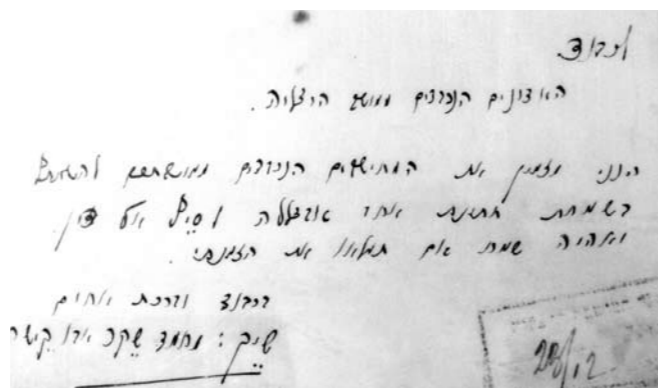 לכבוד
האדונים הנכבדים ממושב הרצליה.
הנני מזמין את המתישבים הנכבדים ממושבתכם להשתתף
בשמחת חתונת אחי עבדללה וסיף אל דין.
ואהיה שמח אם תמלאו את הזמנתי.
בכבוד וברכת אחים
שיך: מחמד שקר אבו קישק
28/12